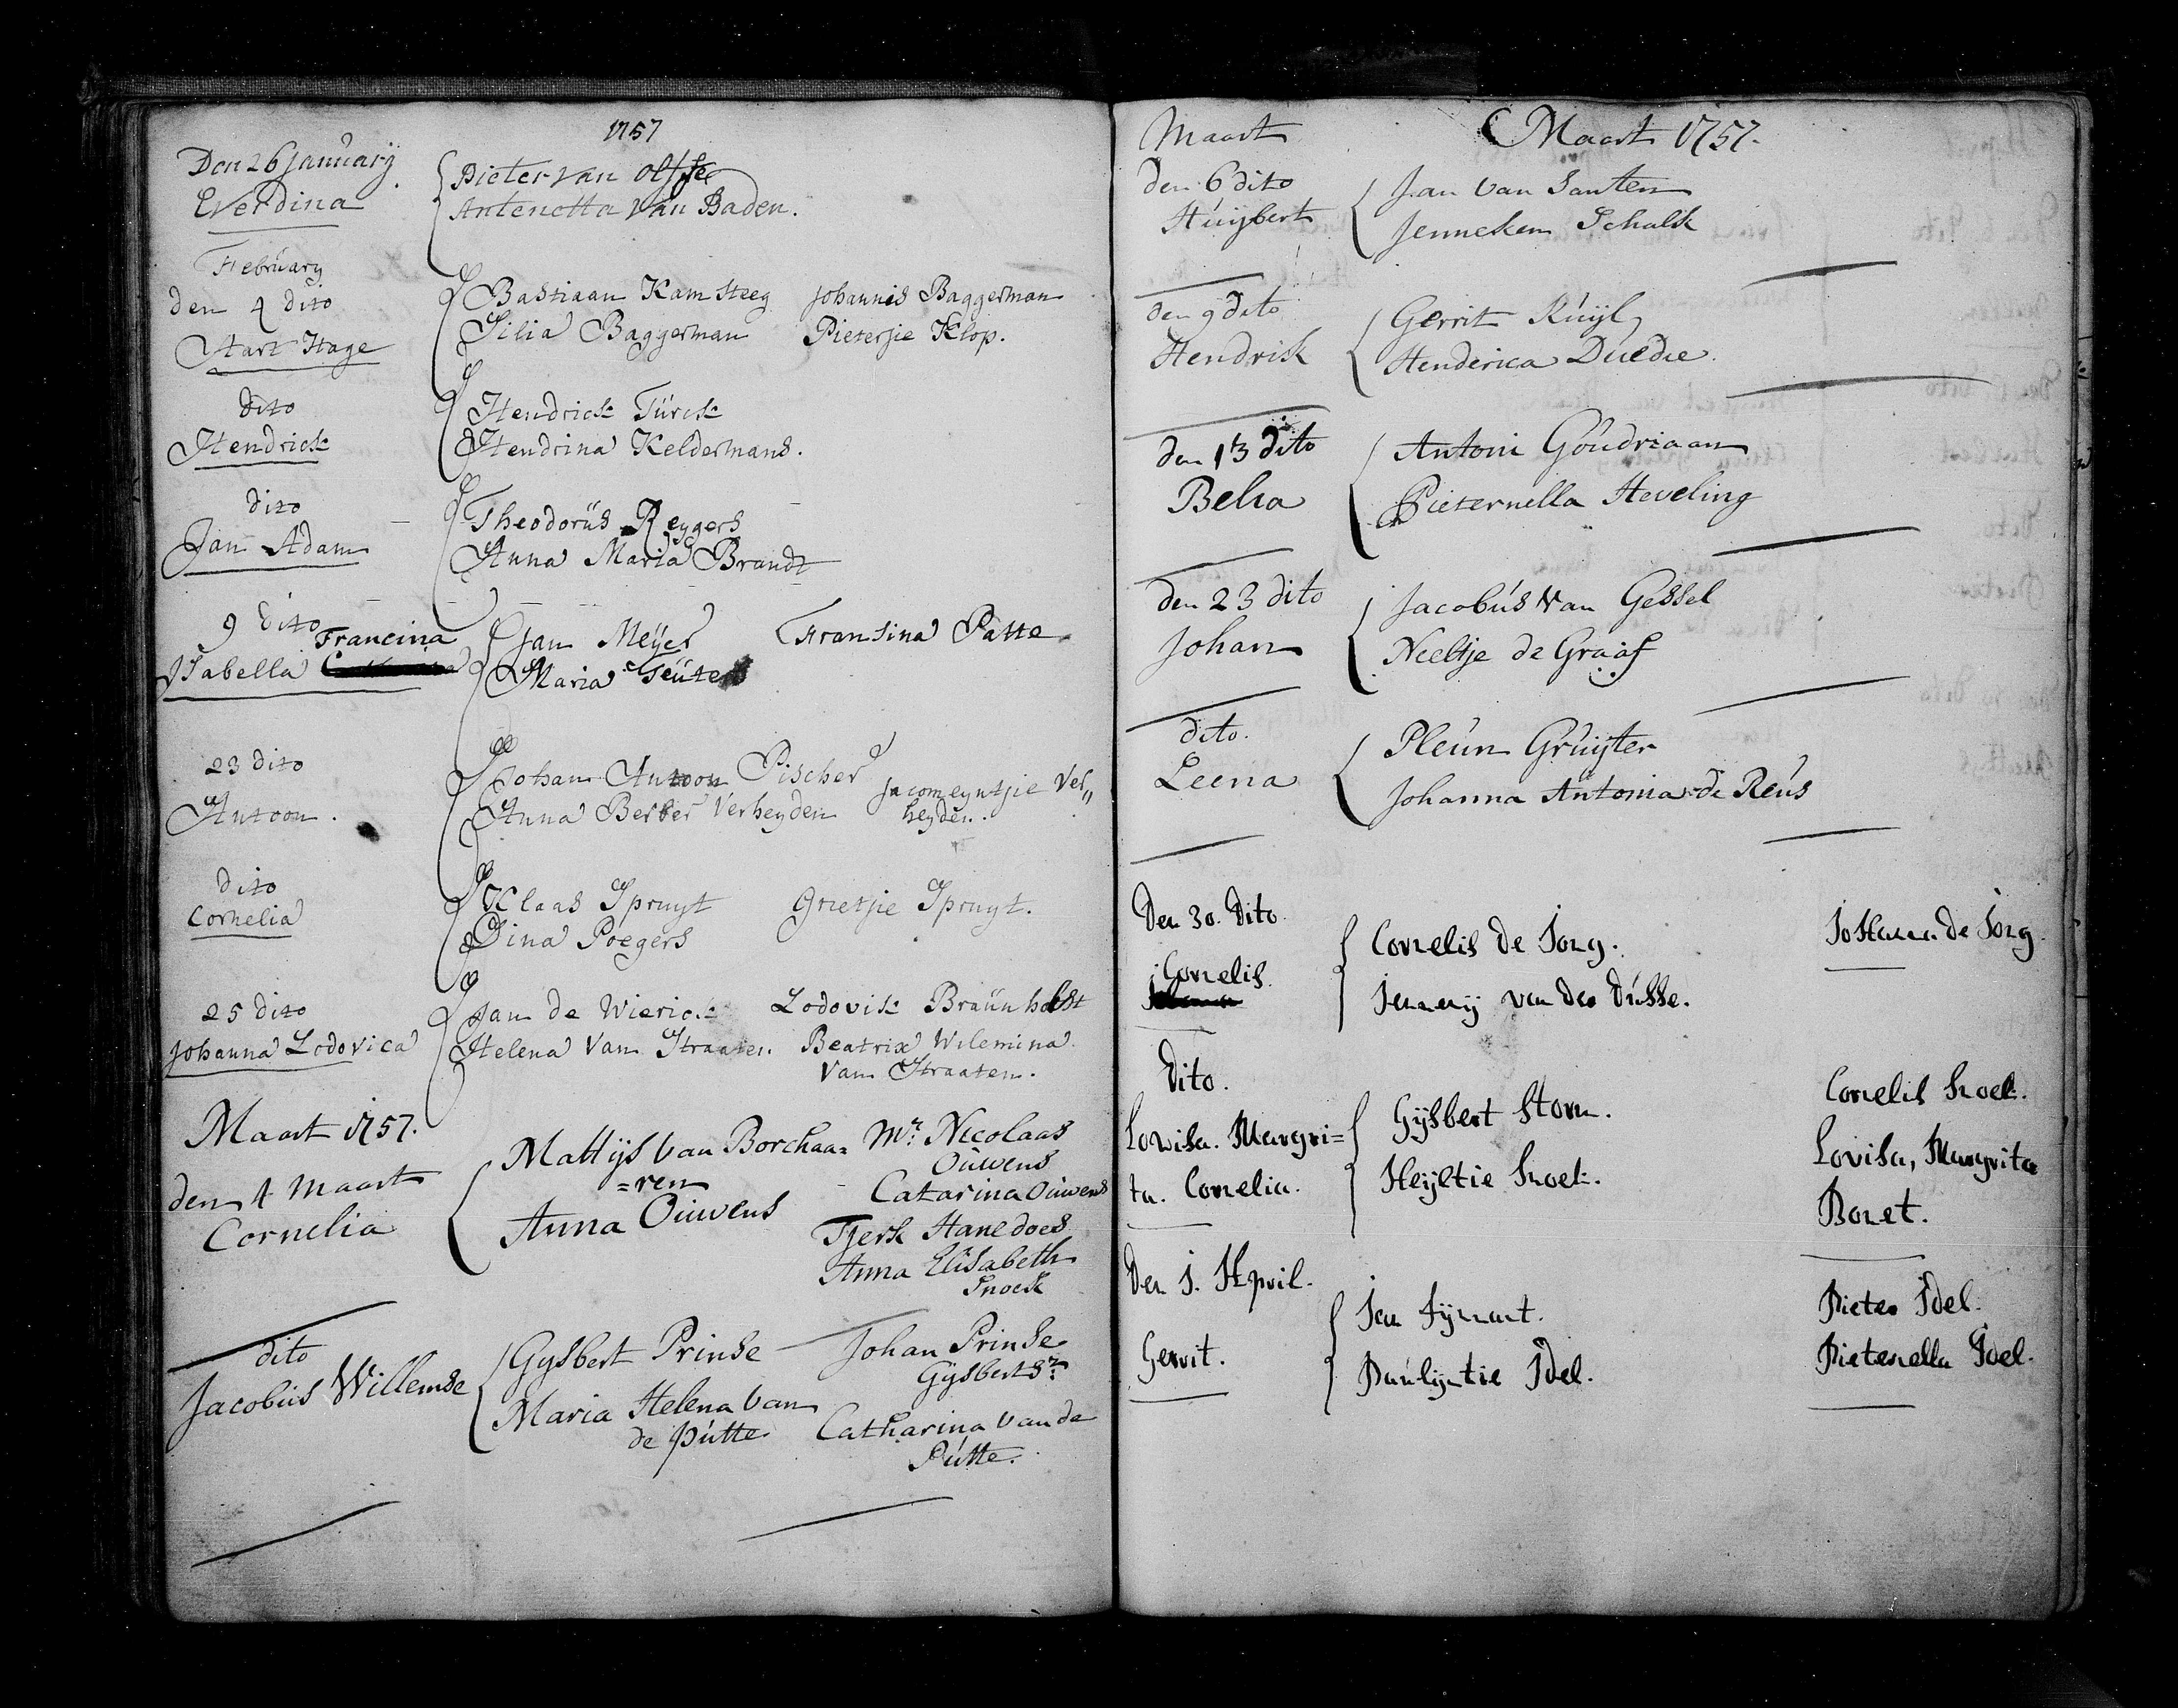 1757
Den 26 January
Everdina
Pieter van
Antenetta van Baden.
February
den 4 dito
Aart Hage
Bastiaan Kamsteeg
Silia Baggerman
Johannis Baggerman
Pietersie Klop.
dito
Hendrick
Hendrick Türck
Hendrina Keldermans.
dito
Jan Adam
Theodorüs Reygers
Anna Maria Brandt
9 dito
Francina
Isabella
Jan Meÿer
Maria
Fransina Patte
23 dito
Antoon.
Johan Antoon Pischer
Anna Berber Verheyden
Jacomeyntjie Ver„
heyden.
dito
Cornelia
Klaas Spruyt
Dina Poegers
Grietjie Spruyt.
25 dito
Johanna Lodovica
Jan de Wierick
Helena Van Straaten.
Lodovik
Beatrix Wilemina
Van Straaten.
Maart 1757.
den 4 Maart
Cornelia
Mattijs van Borchaa=
=ren
Anna Oúwens
Mr. Nicolaas
Oúwens
Catarina Oúwens
Tjerk Hanedoes
Anna Elisabeth
Snoeck
dito
Jacobús Willemse
Gysbert Prinse
Maria Helena van
de Pútte
Johan Prinse
Gysbertsz.
Catharina van de
Pútte.
Maart
Maart 1757.
den 6 dito
Húijbert
Jan van Santen
Jenneken Schalk
den 9 dito
Hendrik
Gerrit Kúijl
Henderica
den 13 dito
Belia
Antoni Goúdriaan
Pieternella Heveling
den 23 dito
Johan
Jacobús van Gessel
Neeltje de Graaf
dito.
Leena
Pleún Grúijter
Johanna Antonia de Reús
Den 30. Dito
Cornelis.
Cornelis de Jong.
Jennij van der Dússe.
Johanna de Jong.
Dito.
Lowisa. Margri=
ta. Cornelia.
Gijsbert Storm.
Heijltie Snoek.
Cornelis Snoek.
Lovisa, Margrita
Bonet.
Den 1. April.
Gerrit.
Jan Fijnaut.
Paulijntie Idel.
Pieter Idel.
Pieternella Idel.